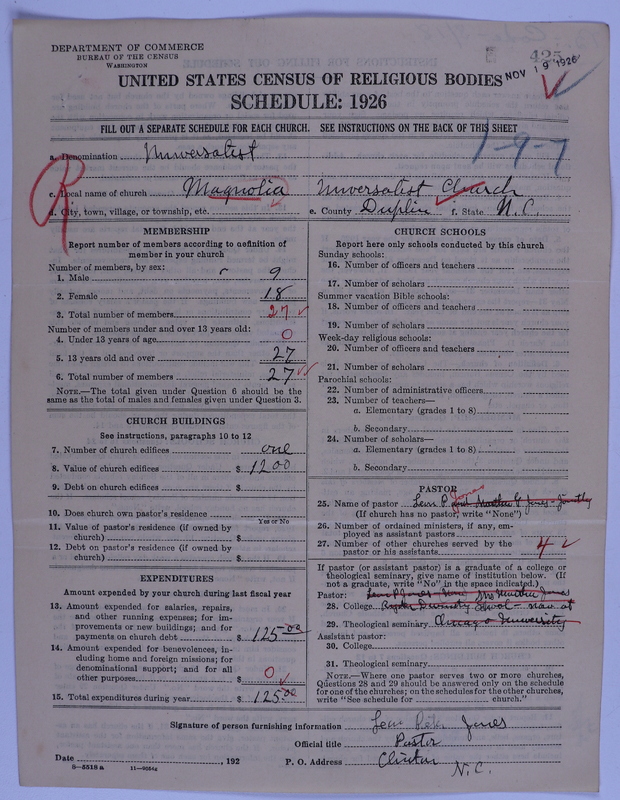 DEPARTMENT OF COMMERCE
BUREAU OF THE CENSUS
WASHINGTON
425
NOV 19 1926
UNITED STATES CENSUS OF RELIGIOUS BODIES
SCHEDULE: 1926
FILL OUT A SEPARATE SCHEDULE FOR EACH CHURCH. SEE INSTRUCTIONS ON THE BACK OF THIS SHEET
1-9-7
a. Denomination Universalist
R
c. Local name of church Magnolia Universalist Church
d. City, town, village, or township, etc. e. County Duplin f. State N.C.
MEMBERSHIP
Report number of members according to definition of
member in your church
Number of members, by sex:
1. Male 9
2. Female 18
3. Total number of members 27
Number of members under and over 13 years old:
4. Under 13 years of age 0
5. 13 years old and over 27
6. Total number of members 27
NOTE.—The total given under Question 6 should be
same as the total of males and females given under Question 3.
CHURCH BUILDINGS
See instructions, paragraphs 10 to 12
7. Number of church edifices one
8. Value of church edifices $ 1200
9. Debt on church edifices $
10. Does church own pastor's residence?
Yes or No
11. Value of pastor's residence (if owned by
church) $
12. Debt on pastor's residence (if owned by
church) $
EXPENDITURES
Amount expended by your church during last fiscal year
13. Amount expended for salaries, repairs,
and other running expenses; for im-
provements or new buildings; and for
payments on church debt $ 125.00
14. Amount expended for benevolences, in-
cluding home and foreign missions; for
denominational support; and for all
other purposes $ 0
15. Total expenditures during year $ 125.00
CHURCH SCHOOLS
Report here only schools conducted by this church
Sunday schools:
16. Number of officers and teachers
17. Number of scholars
Summer vacation Bible schools:
18. Number of officers and teachers
19. Number of scholars
Week-day religious schools:
20. Number of officers and teachers
21. Number of scholars
Parochial schools:
22. Number of administrative officers
23. Number of teachers—
a. Elementary (grades 1 to 8)
b. Secondary
24. Number of scholars—
a. Elementary (grades 1 to 8)
b. Secondary
PASTOR
Jones
25. Name of pastor Levi P. and Martha G Jones - Jointly
(If church has no pastor, write "None")
26. Number of ordained ministers, if any, em-
ployed as assistant pastors
27. Number of other churches served by the
pastor or his assistants 4
If pastor (or assistant pastor) is a graduate of a college or
theological seminary, give name of institution below. (If
not a graduate, write "No" in the space indicated.)
Pastor: Levi P Jones Mrs Martha Jones
28. College Divinity School - now at
29. Theological seminary Chicago University
Assistant pastor:
30. College
31. Theological seminary
NOTE.—Where one pastor serves two or more churches,
Questions 28 and 29 should be answered only on the schedule
for one of the churches; on the schedules for the other churches,
write "See schedule for church."
Signature of person furnishing information Levi Jones
Official title Pastor
Date , 192 P. O. Address Clinton N.C.
8—5518 a